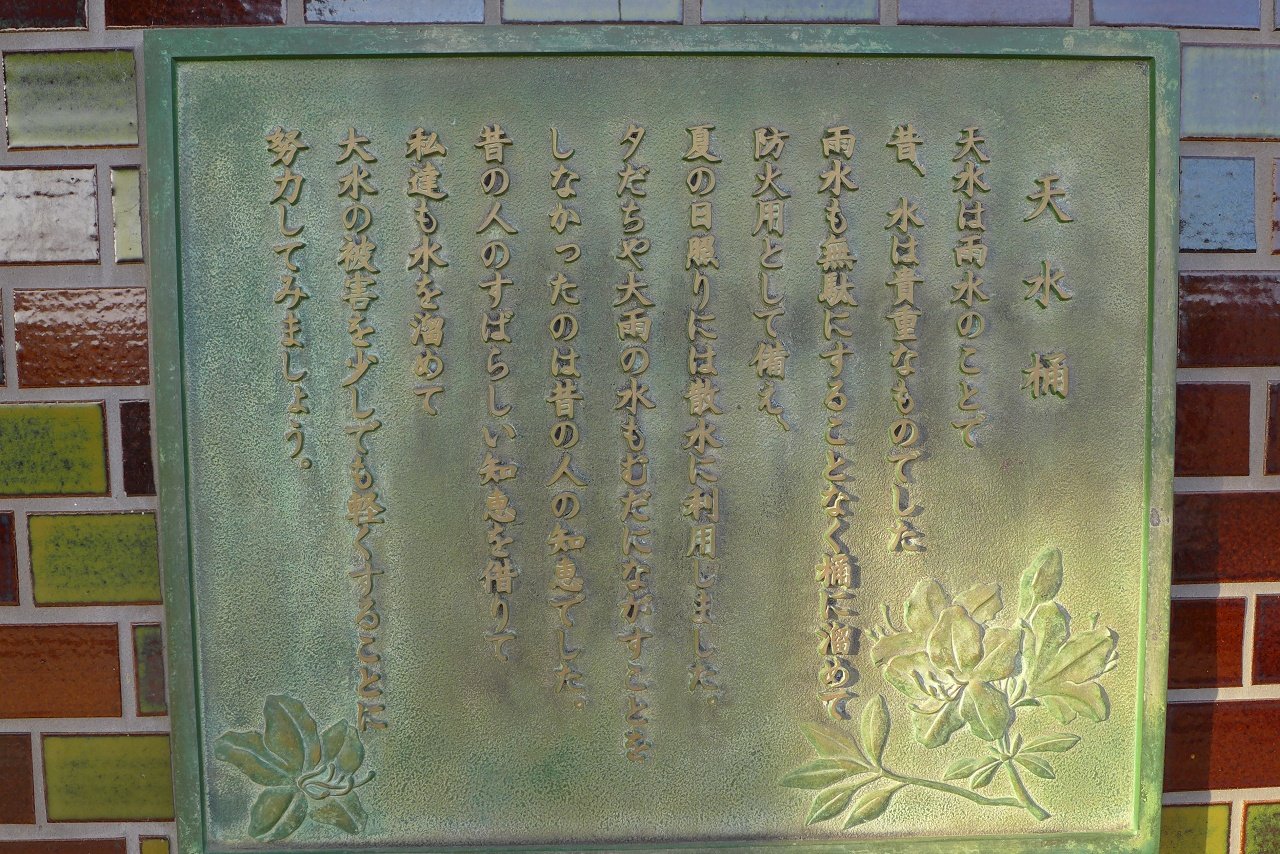 天水桶
天水は雨水のことで
昔、水は貴重なものでした
雨水も無駄にすることなく桶に溜めて
防火用として備え、
夏の日照りには散水に利用しました。
夕だちや大雨の水もむだにながすことを
しなかったのは昔の人の知恵でした。
昔の人のすばらしい知恵を借りて
私達も水を溜めて
大水の被害を少しでも軽くすることに
努力してみましょう。